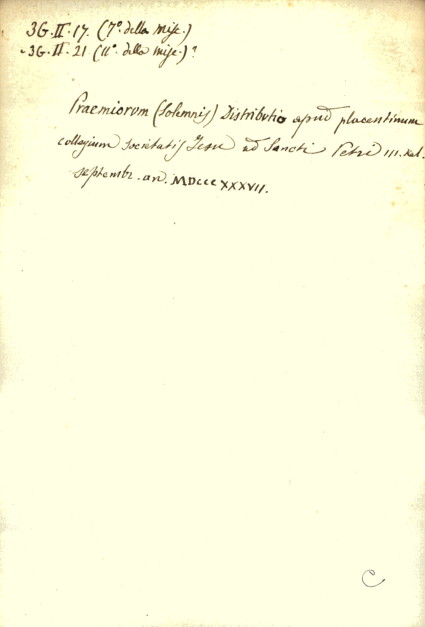 3G.II.17. (7º. della misc.)
3G.II.21 (11º. della misc.)?
Praemiorum (Solemnis) Distributio apud placentinum
collegium societatis Jesu ad Sancti Petri III. Kal.
septembr. an. MDCCCXXXVII.
C